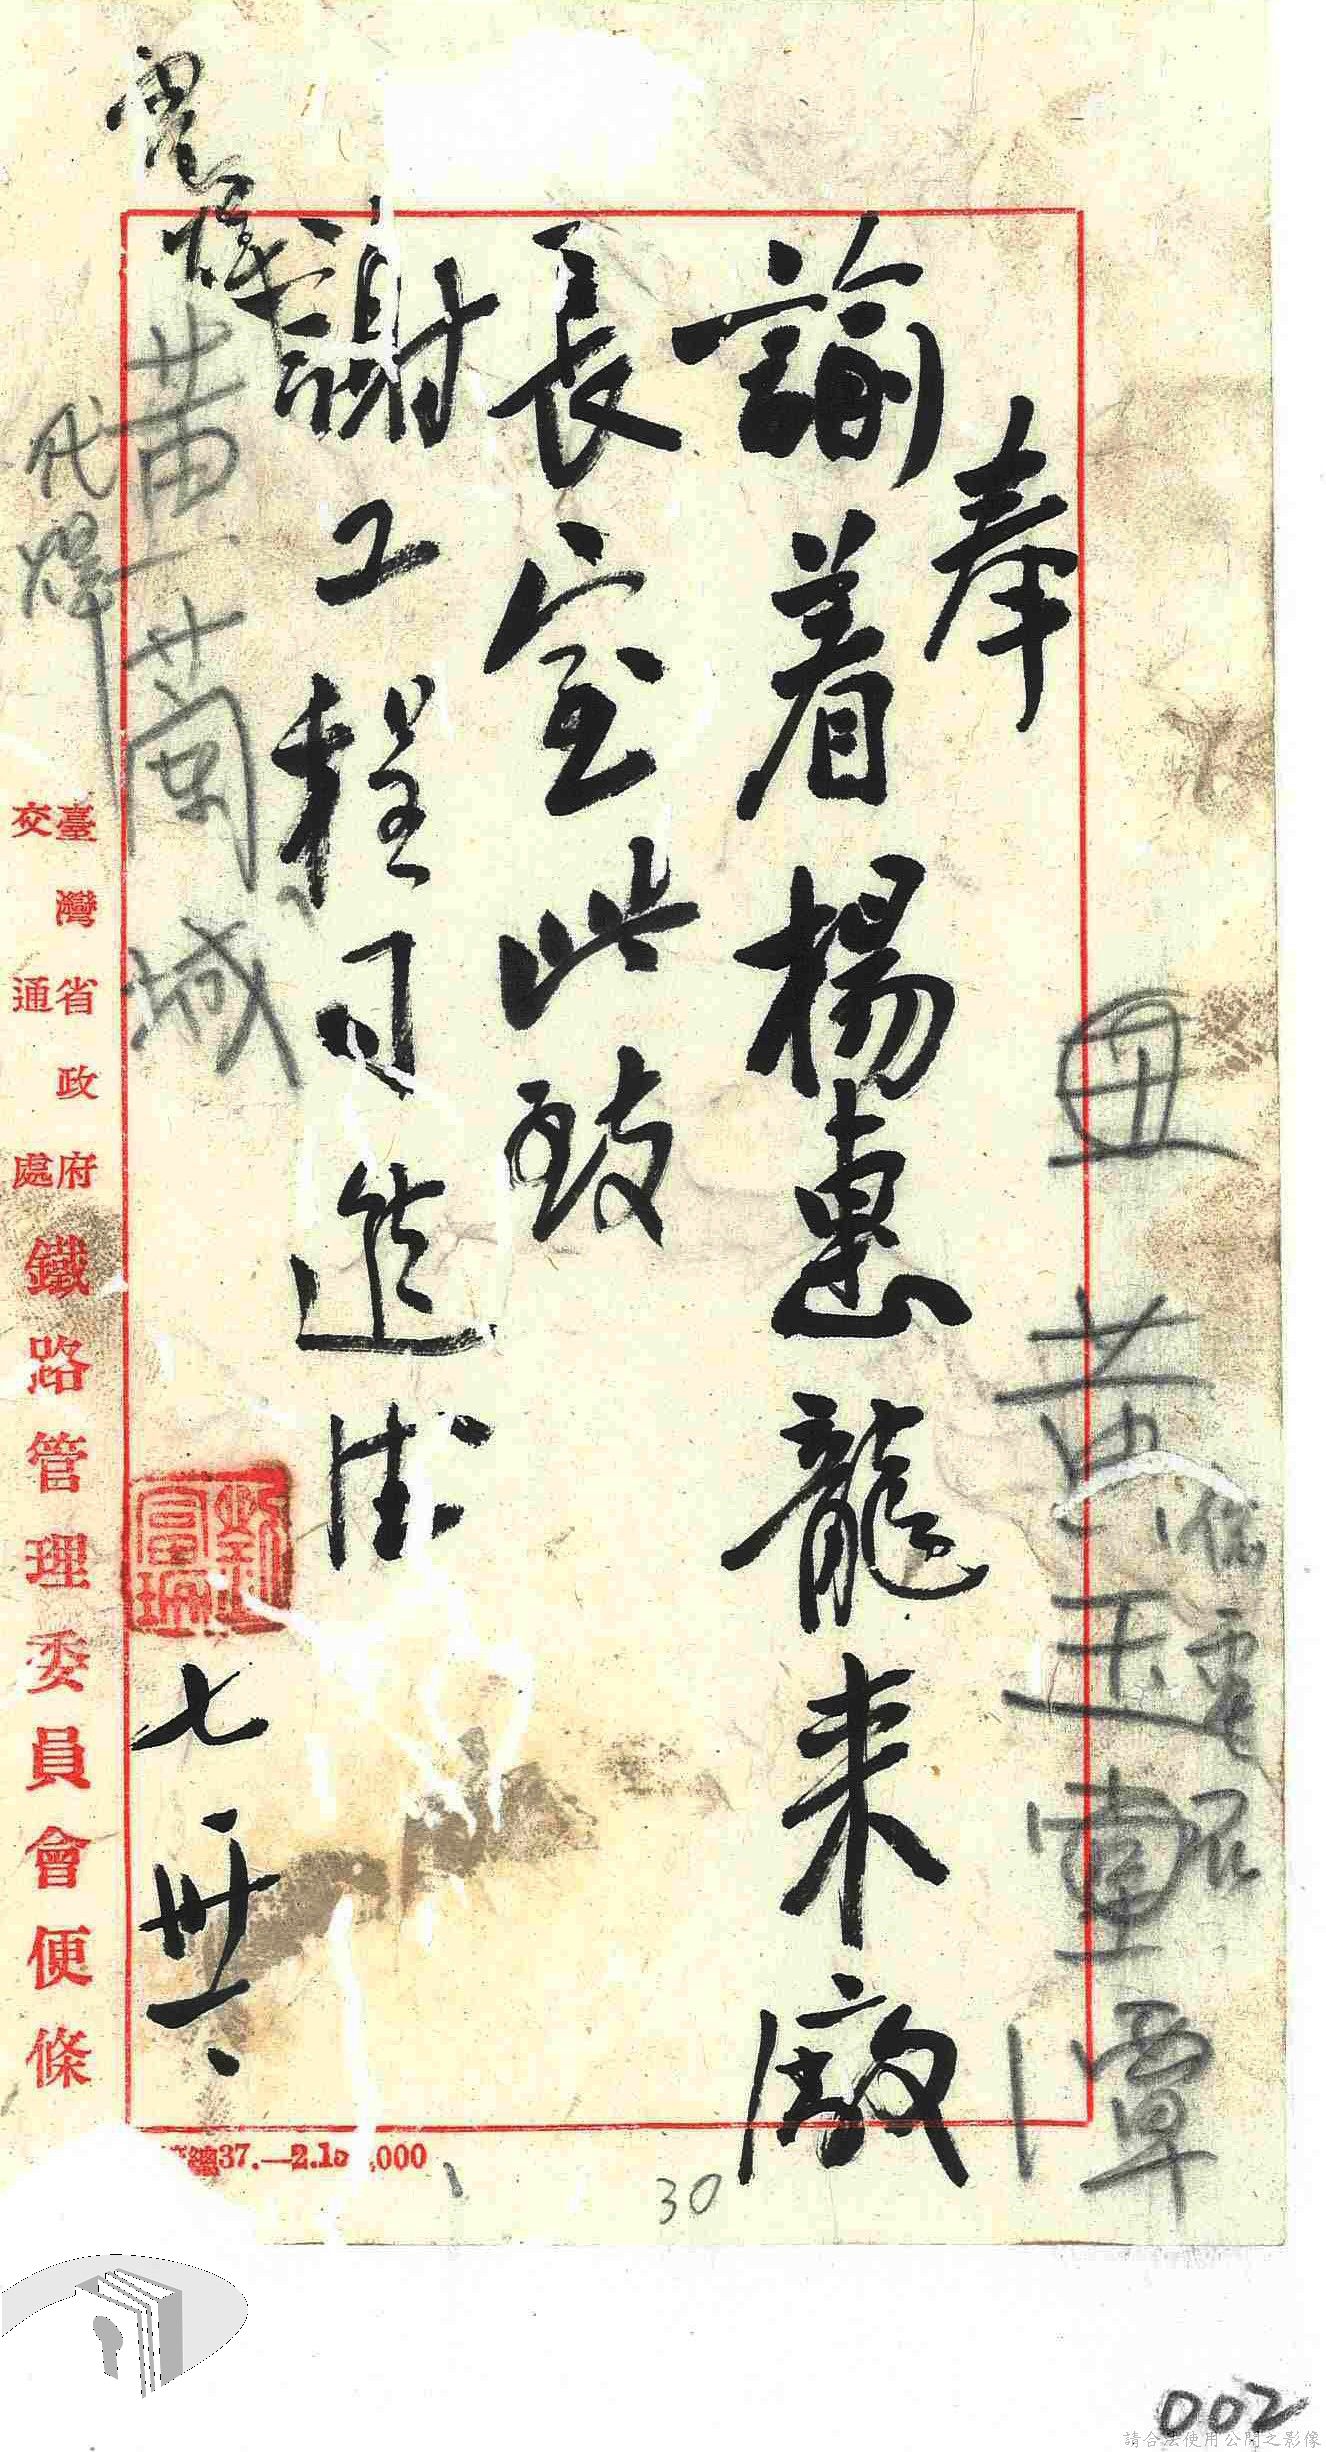 奉
諭着楊惠龍来廠
長室此致
謝工程司進來
七 卅一、
黃萬城
代
丑 黃玉軒 潭
臺灣省政府交通處鐵路管理委員會便條
總37.—2.15 ,000
30
002
請合法使用公開之影像